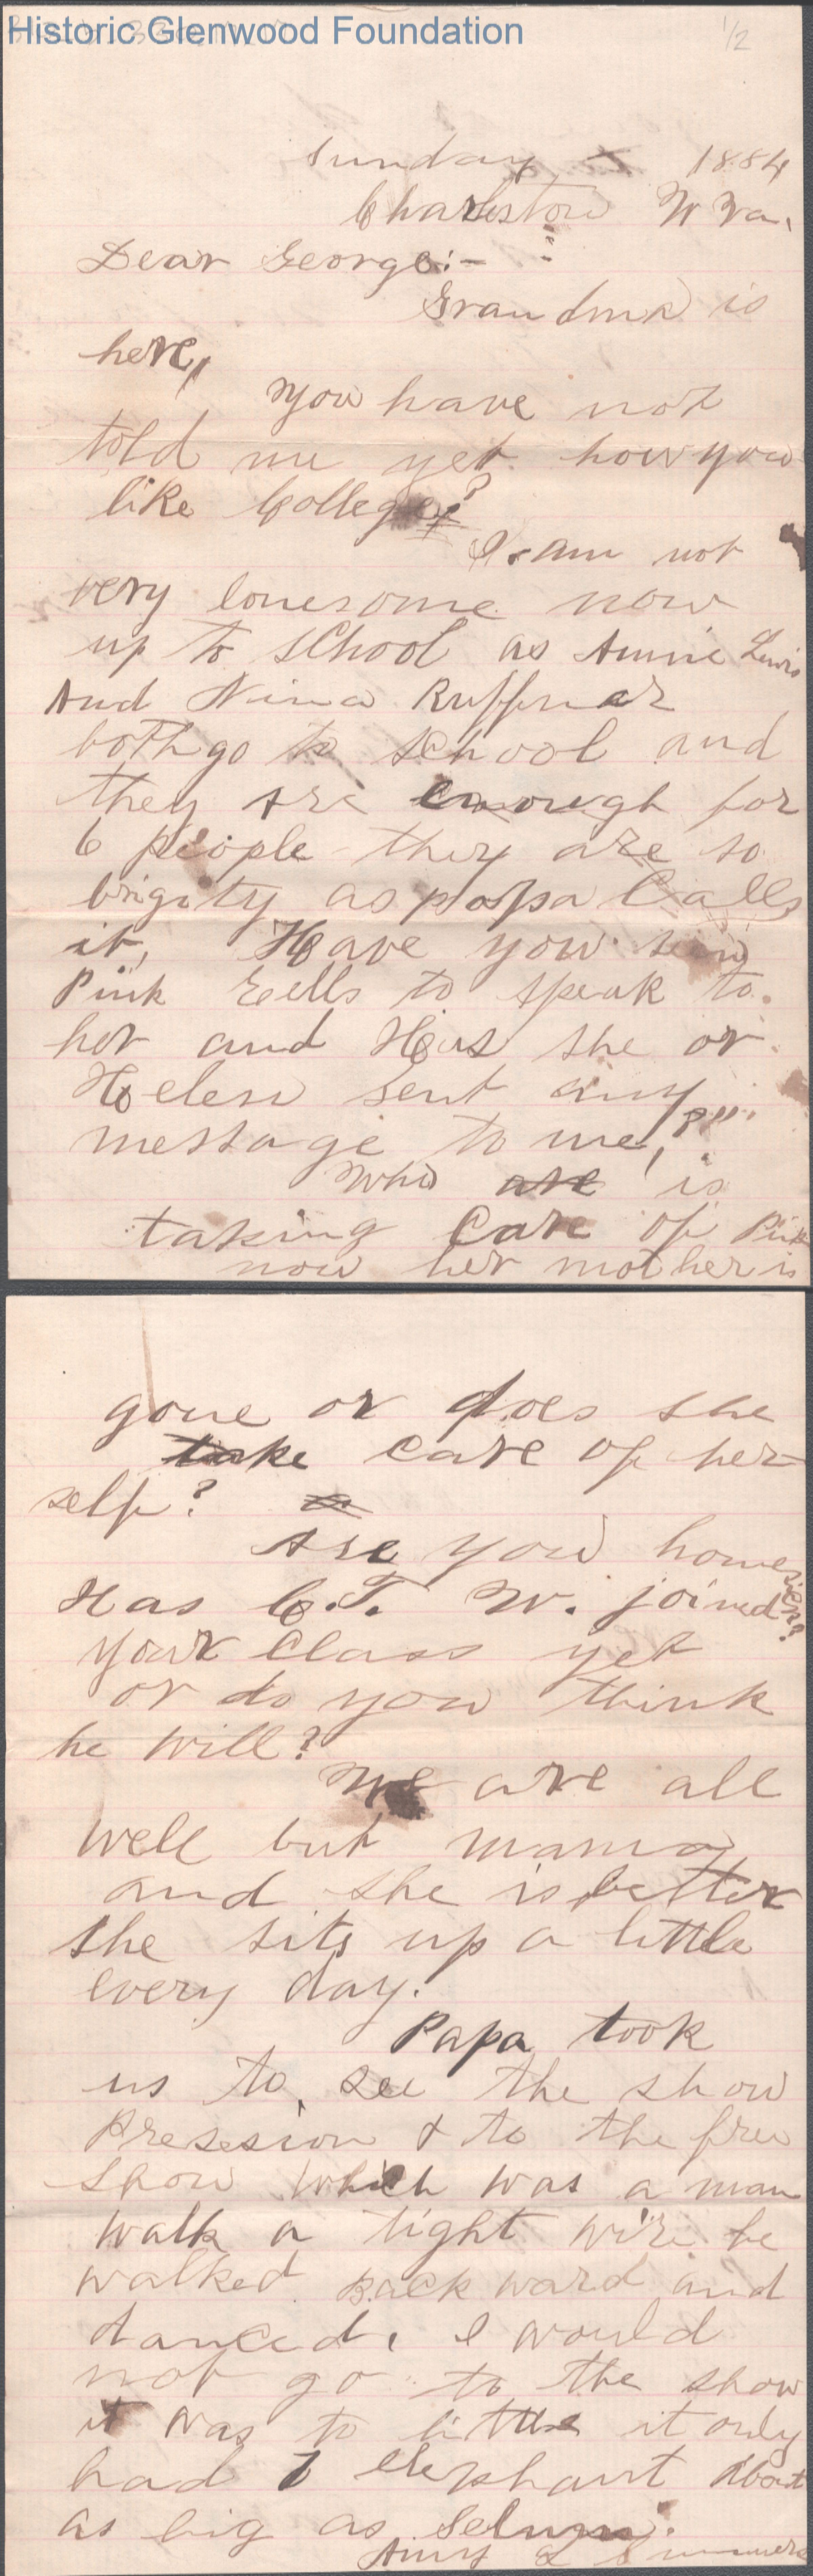 Historic Glenwood Foundation
1/2
Sunday 1884
Charlestow W Va.
Dear George:-
Grandma is
here,
You have not
told me yet how you
like College?
I am not
very lonesome now
up to school as Annie Lewis
And Nina Ruffner
both go to school and
they are enough for
6 people they are so
as popa Calls
it, Have you seen
Pink Eells to speak to
her and Has she or
Helen sent any
message to me,?"
Who are is
taking Care of Pink
now her mother is
gone or does she
take care of her-
self?
Are you home sick?
Has C. T. W. joined
your Class yet
or do you think
he will?
We are all
well but mama
and she is better
she sits up a little
every day.
Papa took
us to see the show
Presession & to the free
show which was a man
walk a tight wire he
walked backward and
danced. I would
not go to the show
it was to little it only
had 1 elephant About
as big as Selum.
Amy L Summers